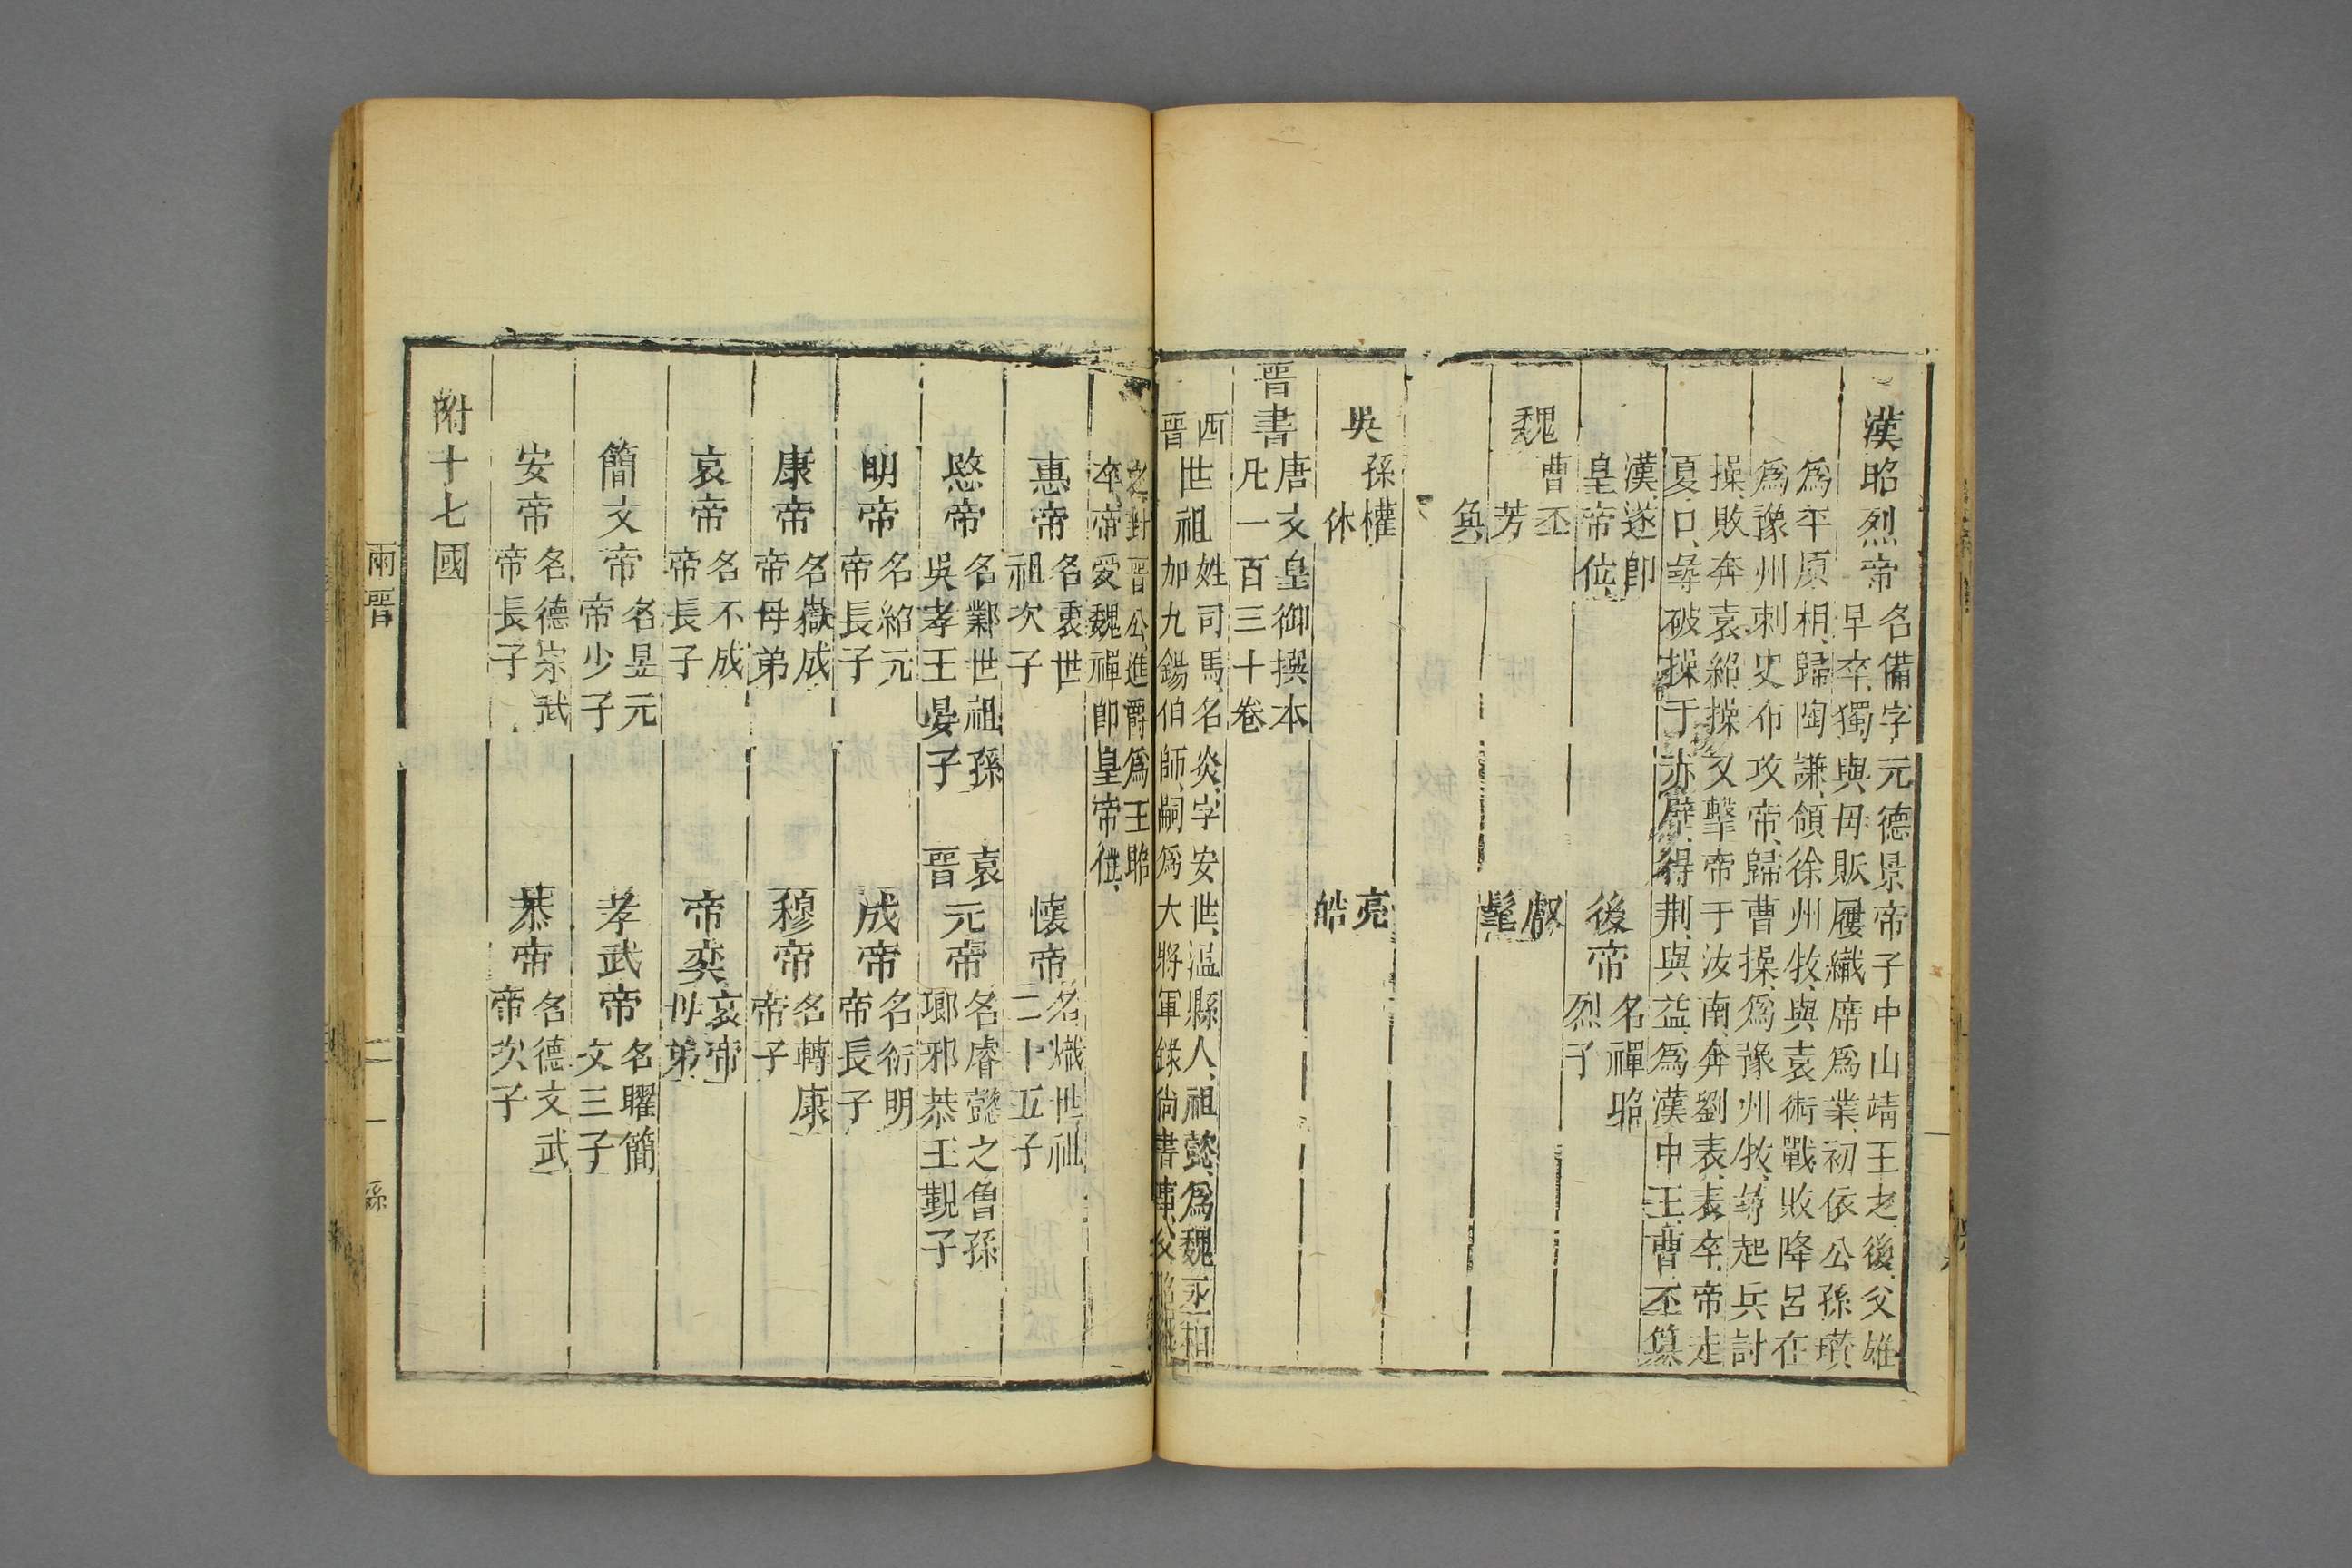 漢昭烈帝
名備字元德景帝子中山靖王之後父雄
早卒獨與母販屨織席為業初依公孫瓚
為平原相歸陶謙領徐州牧與袁術戰敗降呂在
為豫州刺史布攻帝歸曹操為豫州牧尋起兵討
操敗奔袁紹操又擊帝于汝南奔劉表表卒帝走
夏口尋破操于赤壁得荆與益為漢中王曹丕篡
漢遂即
皇帝位
後帝
名禪昭
烈子
魏
曹丕
芳
叡
髦
奐
吳
孫權
休
亮
皓
晉書
唐文皇御撰本
凡一百三十卷
西晉
世祖
姓司馬名炎字安世温縣人祖懿為魏丞相
加九錫伯師嗣為大將軍錄尚書事父昭
之封晉公進爵為王昭
卒帝愛魏禪即皇帝位
惠帝
名衷世
祖次子
懷帝
名熾世祖
二十五子
愍帝
名鄴世祖孫
吳孝王晏子
袁晉
元帝
名睿懿之曾孫
瑯邪恭王覲子
明帝
名紹元
帝長子
成帝
名衍明
帝長子
康帝
名嶽成
帝母弟
穆帝
名轉康
帝子
哀帝
名不成
帝長子
帝奕
哀帝
母弟
簡文帝
名昱元
帝少子
孝武帝
名曜簡
文三子
安帝
名德宗武
帝長子
恭帝
名德文武
帝次子
附十七國
兩晉
二